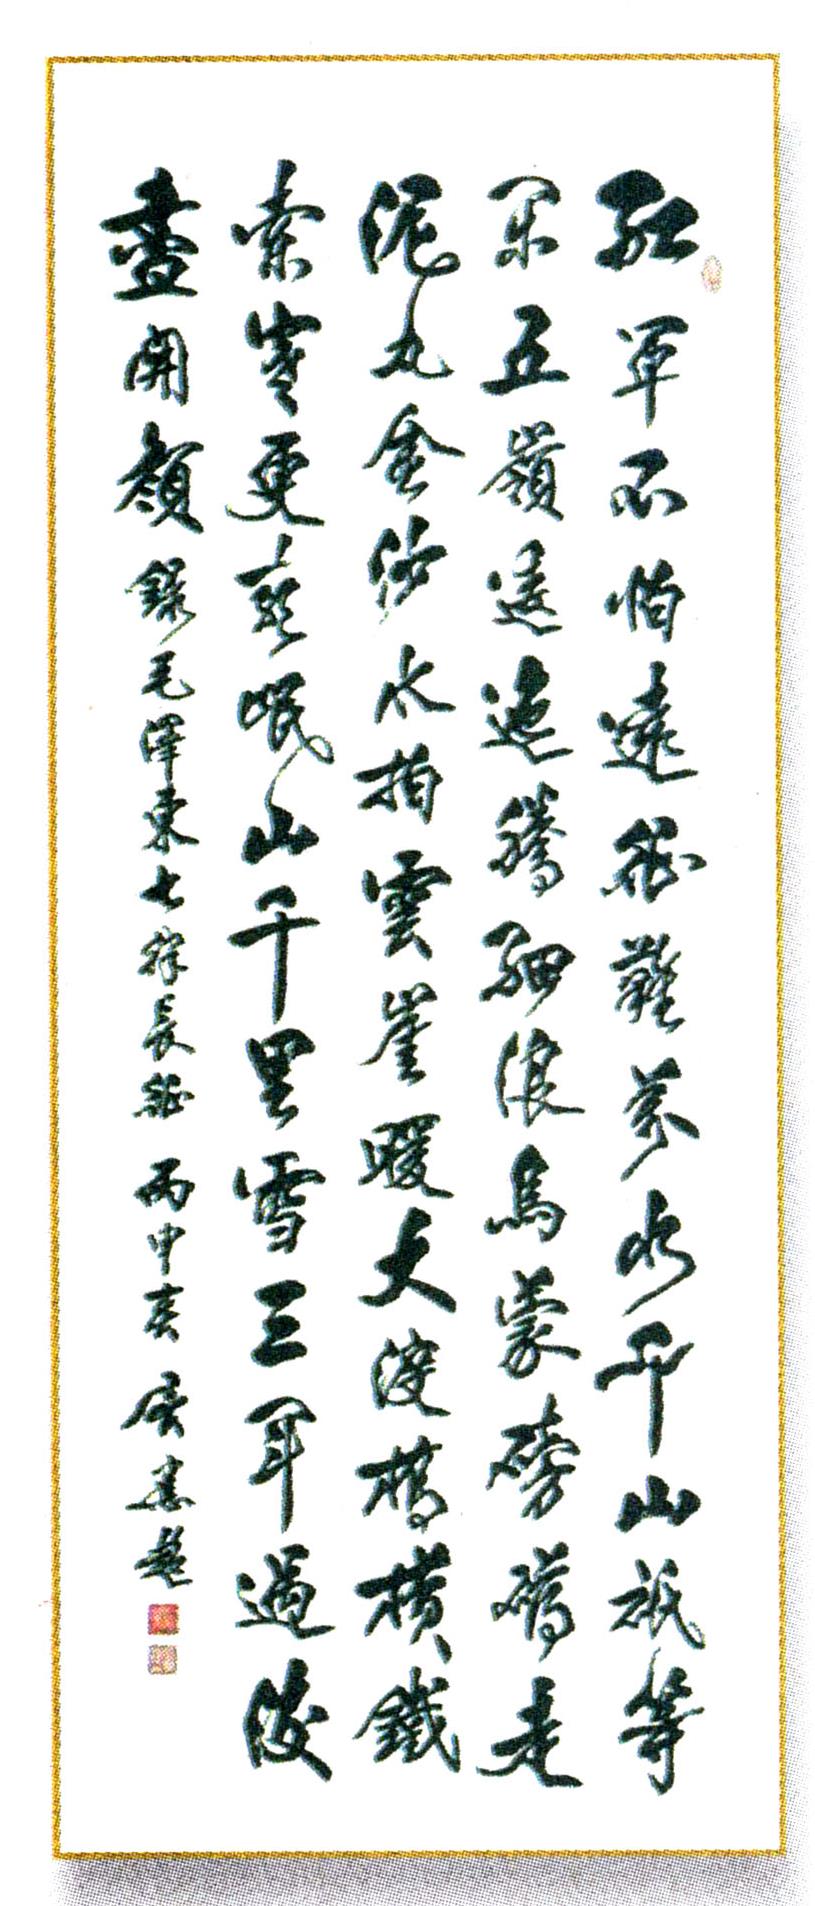 紅軍不怕遠征難萬水千山祇等
閑五嶺逶迤騰細浪烏蒙磅礴走
泥丸金沙水拍雲崖暖大渡橋橫鐵
索寒更喜岷山千里雪三軍過後
盡開顏 錄毛澤東七律長征 丙申春